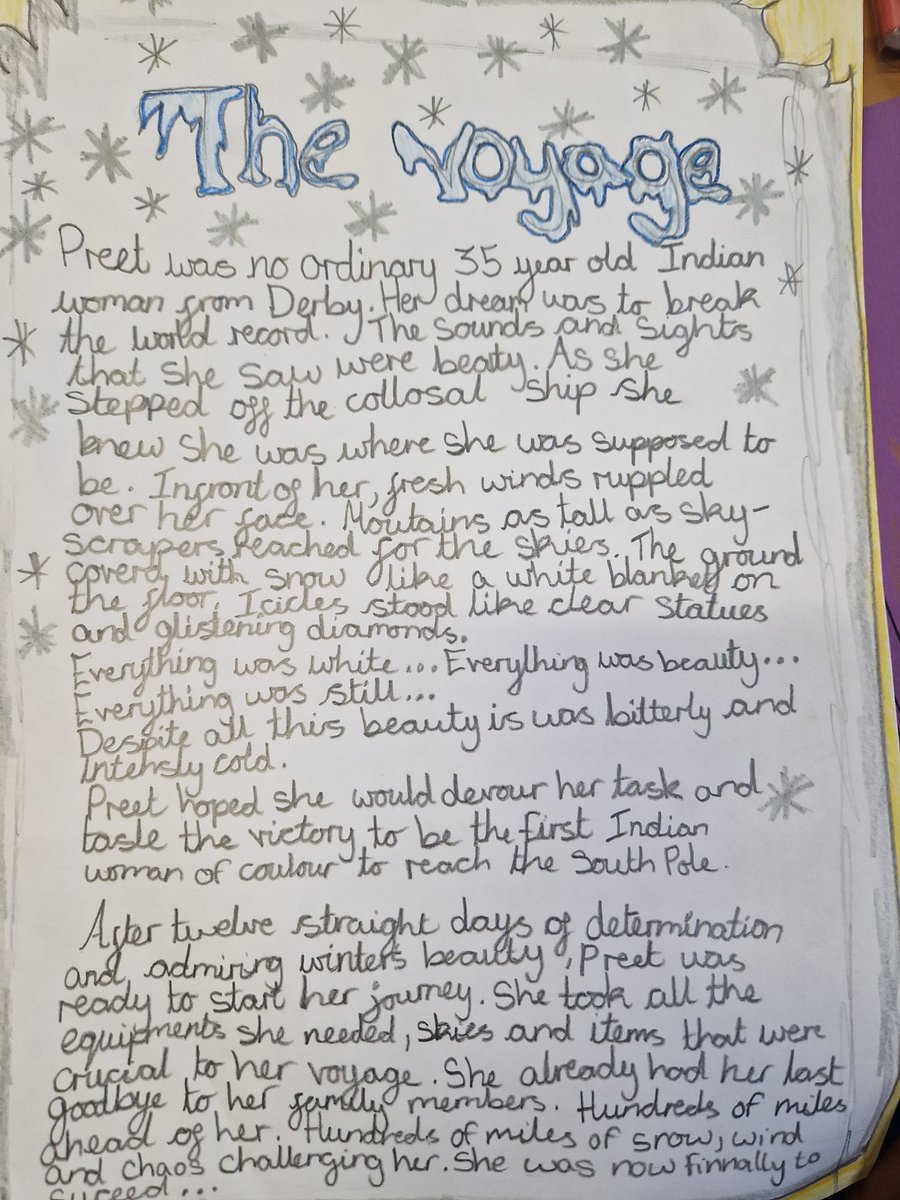 The voyage
Preet was no ordinary 35 year old Indian
woman from Derby. Her dream was to break
the world record. The Sounds and Sights
that She saw were beaty. As she
Stepped off the collosal ship she
knew She was where she was supposed to
be. Infront of her, fresh winds ruppled
over her face. Moutains as tall as sky-
scrapers reached for the skies. The ground
coverd with snow like a white blanket on
the floor. Icicles stood like clear statues
and glistening diamonds.
Everything was white... Everything was beauty...
Everything was still...
Despite all this beauty is was bitterly and
intensly cold.
Preet hoped she would devour her task and
taste the victory to be the first Indian
woman of coulour to reach the South Pole.
After twelve straight days of determination
and admiring winters beauty, Preet was
ready to start her journey. She took all the
equipments she needed, skies and items that were
crucial to her voyage. She already had her last
goodbye to her family members. Hundreds of miles
ahead of her. Hundreds of miles of snow, wind
and chaos challenging her. She was now finnally to
suceed...